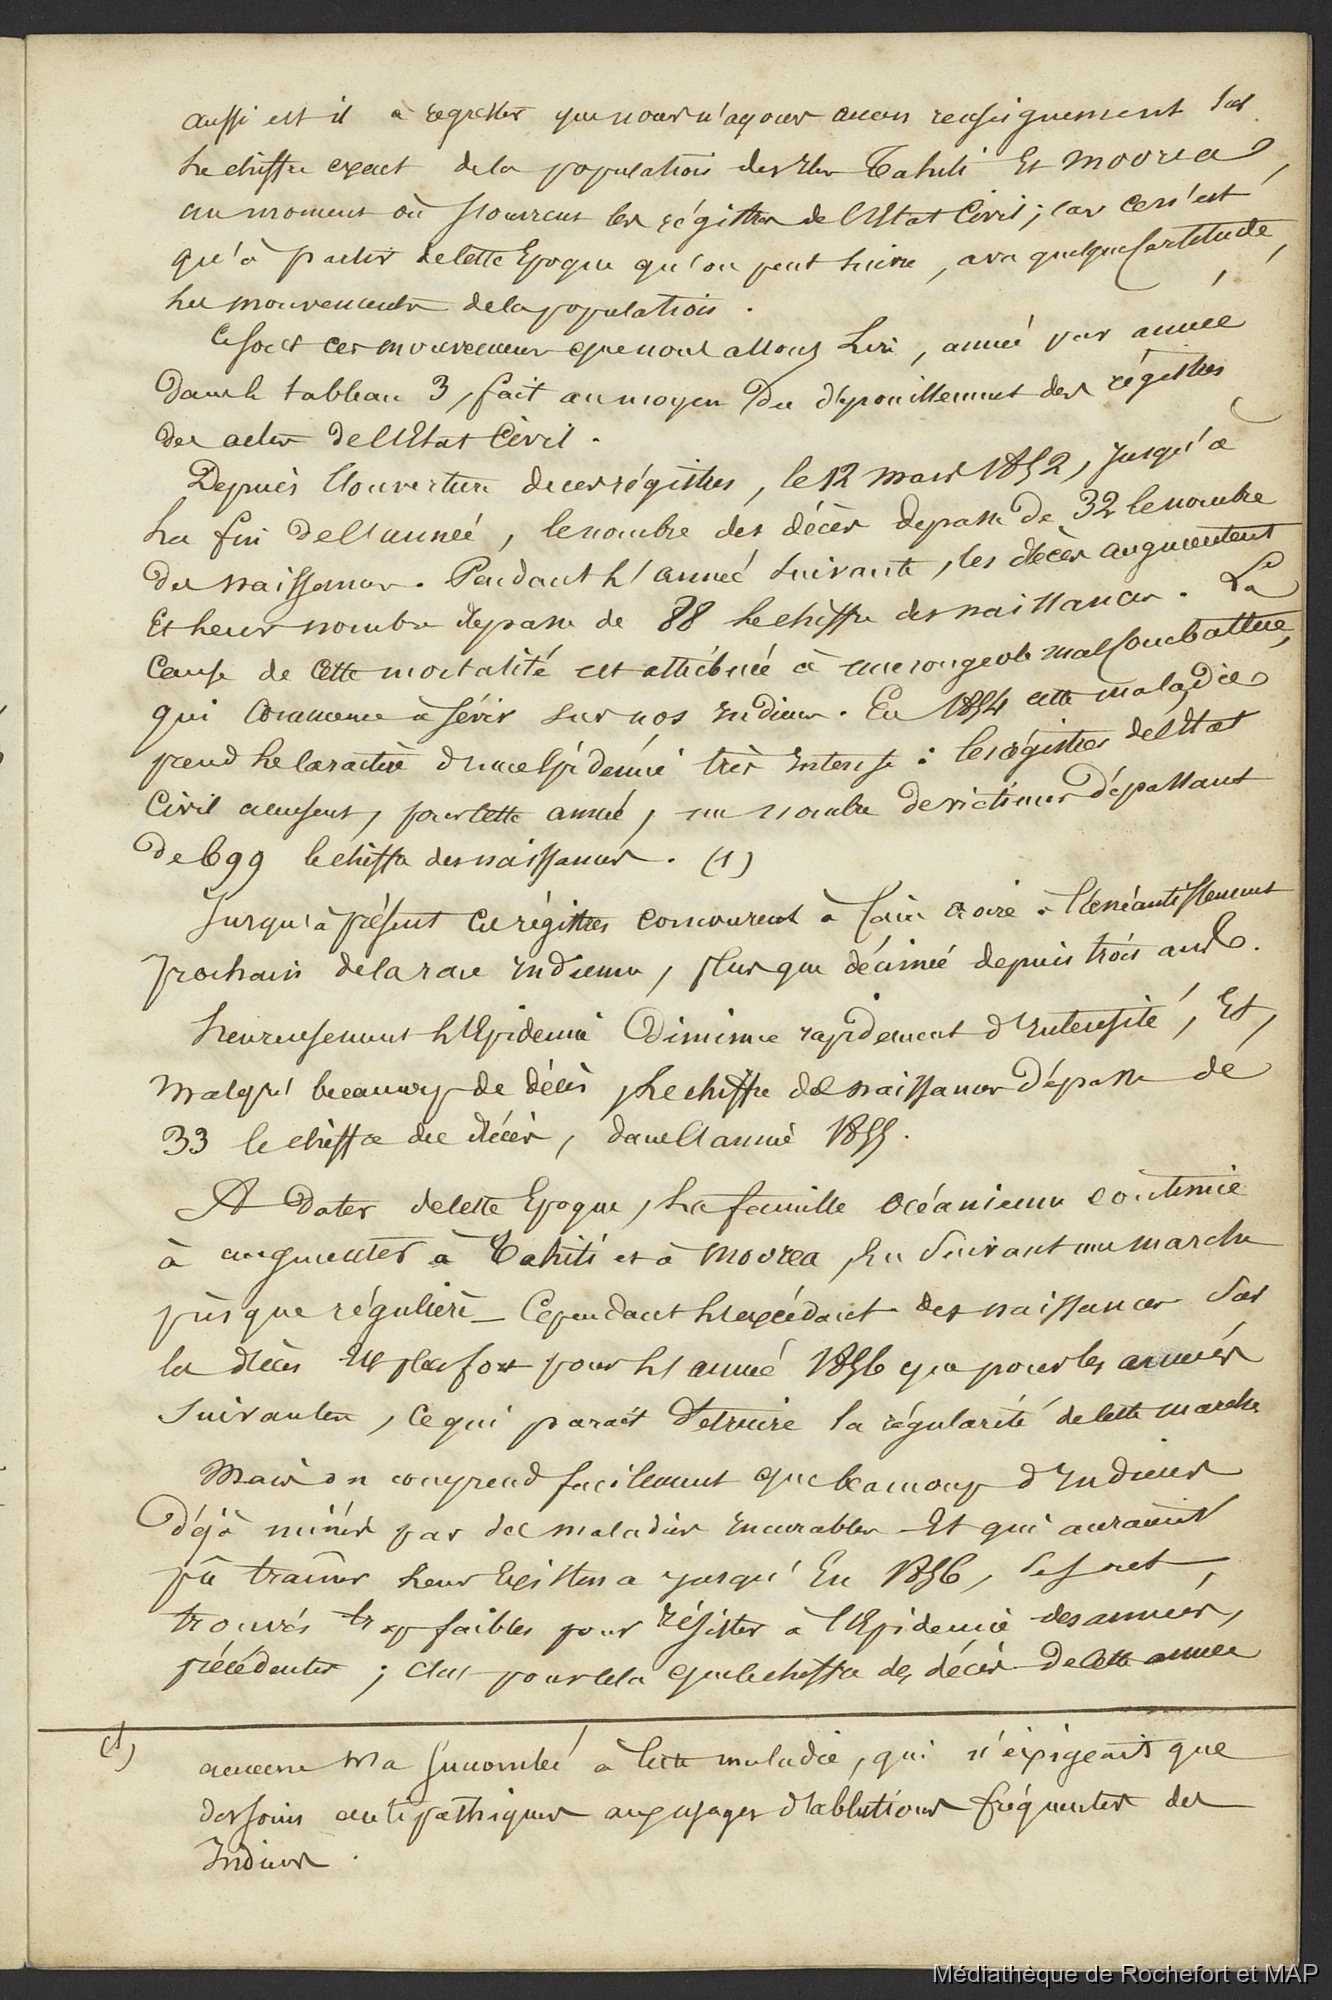 aussi est il à regretter que nous n'ayons aucun renseignement sur
le chiffre exact de la population des Iles Tahiti Et Moorea,
au moment où s'ouvrent les régistres de l'Etat Civil ; car ce n'est
qu'à partir de cette Epoque qu'on peut suivre, avec quelque Certitude,
les mouvements de la population.
Ce sont ces mouvements que nous allons Lire, année par année
Dans le tableau 3, fait au moyen Du dépouillement des régistres
des actes De l'Etat Civil.
Depuis l'ouverture de ces régistres, le 12 mars 1852, jusqu'à
la fin De l'année, le nombre des décès depasse De 32 le nombre
Des naissances. Pendant l'année suivante, les décès augmentent
Et leur nombre dépasse de 88 le chiffre des naissances. La
Cause de Cette mortalité est attribuée à une rougeole mal Combattue,
qui Commence à sévir sur nos Indiens. En 1854 cette maladie
prend le Caractère d'une Epidémie très Intense : les régistres de l'Etat
Civil accusent, pour Cette année, un nombre de victimes Dépassant
De 699 le chiffre des naissances. (1)
Jusqu'à présent Ces régistres concourent à faire croire à l'anéantissement
prochain de la race Indienne, plus que décimée depuis trois ans.
heureusement l'Epidémie Diminue rapidement d'Intensité, Et,
Malgré beaucoup de décès, le chiffre des naissances Dépasse de
33 le chiffre des décès, dans l'année 1855.
A Dater de cette Epoque, la famille Océanienne continue
à augmenter à Tahiti et à Moorea, En Suivant une marche
presque régulière_ Cependant l'excédant des naissances Sur
les décès Est plus fort pour l'année 1856 que pour les années
suivantes, Ce qui paraît Détruire la régularité de Cette marche
Mais on comprend facilement que beaucoup d'Indiens
Déjà minés par des maladies Incurables Et qui auraient
pû traîner leur Existence jusqu'En 1856, se sont
trouvés trop faibles pour résister à l'Epidémie des années
précédentes ; C'est pour cela que le chiffre des décès De Cette année
(1) aucun n'a succombé à Cette maladie, qui n'éxigeait que
des soins antipathiques aux usages d'ablutions fréquentes des
Indiens.
Médiathèque de Rochefort et MAP